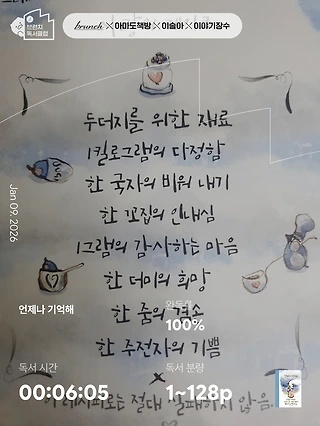 브런치
독서클럽
brunch × 아미도책방 × 이슬아 × 이야기장수
두더지를 위한 재료
1킬로그램의 다정함
한 국자의 비워 내기
한 꼬집의 인내심
1그램의 감사하는 마음
한 더미의 희망
한 줌의 겸손
한 주전자의 기쁨
×
이 레시피로는 절대 실패하지 않음.
Jan 09, 2026
언제나 기억해
완독율
100%
독서 시간
00:06:05
독서 분량
1~128p